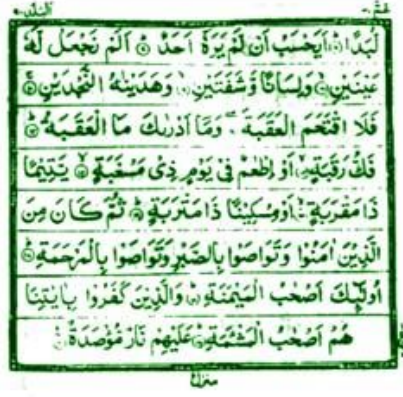 عمّ ٣٠ البلد ٩٠
لُّبَدًا ۝ اَيَحْسَبُ اَنْ لَّمْ يَرَهٗۤ اَحَدٌ ۝ اَلَمْ نَجْعَلْ لَّهٗ
عَيْنَيْنِ ۝ وَلِسَانًا وَّشَفَتَيْنِ ۝ وَهَدَيْنٰهُ النَّجْدَيْنِ ۝
فَلَا اقْتَحَمَ الْعَقَبَةَ ۝ وَمَاۤ اَدْرٰىكَ مَا الْعَقَبَةُ ۝
فَكُّ رَقَبَةٍ ۝ اَوْ اِطْعٰمٌ فِىْ يَوْمٍ ذِىْ مَسْغَبَةٍ ۝ يَّتِيْمًا
ذَا مَقْرَبَةٍ ۝ اَوْ مِسْكِيْنًا ذَا مَتْرَبَةٍ ۝ ثُمَّ كَانَ مِنَ
الَّذِيْنَ اٰمَنُوْا وَتَوَاصَوْا بِالصَّبْرِ وَتَوَاصَوْا بِالْمَرْحَمَةِ ۝
اُولٰٓئِكَ اَصْحٰبُ الْمَيْمَنَةِ ۝ وَالَّذِيْنَ كَفَرُوْا بِاٰيٰتِنَا
هُمْ اَصْحٰبُ الْمَشْئَمَةِ ۝ عَلَيْهِمْ نَارٌ مُّؤْصَدَةٌ ۝
منزل